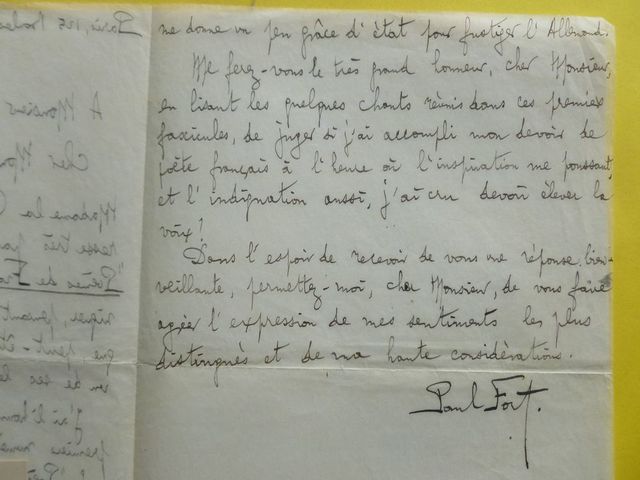 me donne un peu grâce d'état pour fustiger l'Allemand.
Me ferez-vous le très grand honneur, cher Monsieur,
en lisant les quelques chants réunis dans ces premiers
fascicules, de juger si j'ai accompli mon devoir de
poète français à l'heure où l'inspiration me poussant,
et l'indignation aussi, j'ai cru devoir élever la
voix!
Dans l'espoir de recevoir de vous une réponse bien-
veillante, permettez-moi, cher Monsieur, de vous faire
agréer l'expression de mes sentiments les plus
distingués et de ma haute considérations.
Paul Fort.
Paris, 125
A Monsieur
Cher
Madame la
resse très
"Poèmes de
que peut-
un de ses
J'ai l'honn